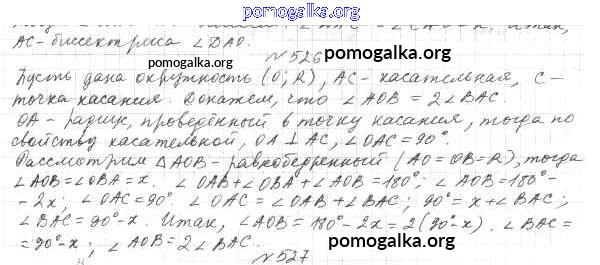 pomogalka.org
AC-биссектриса ∠DAO.
N526
pomogalka.org
Пусть дана окружность (O;R), AC-касательная, C-
точка касания. Докажем, что ∠AOB = 2∠BAC.
OA-радиус, проведённый в точку касания, тогда по
свойству касательной, OA⊥AC, ∠OAC=90°.
Рассмотрим △AOB-равнобедренный (AO=OB=R), тогда
∠AOB=∠OBA=x. ∠OAB+∠OBA+∠AOB=180°; ∠AOB=180°-
-2x; ∠OAC=90°. ∠OAC=∠OAB+∠BAC; 90°=x+∠BAC;
∠BAC=90°-x. Итак, ∠AOB=180°-2x=2(90°-x). ∠BAC=
=90°-x; ∠AOB=2∠BAC.
pomogalka.org
N527